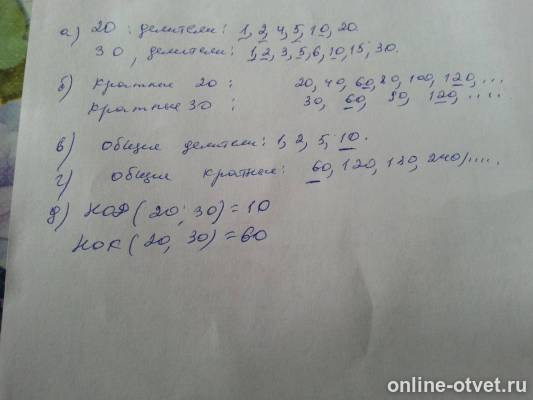 а) 20 : делители : 1, 2, 4, 5, 10, 20.
30, делители : 1, 2, 3, 5, 6, 10, 15, 30.
б) кратные 20 : 20, 40, 60, 80, 100, 120, ...
кратные 30 : 30, 60, 90, 120, ....
в) общие делители : 1, 2, 5, 10.
г) общие кратные : 60, 120, 180, 240, .....
д) НОД (20; 30) = 10
НОК (20, 30) = 60
online-otvet.ru